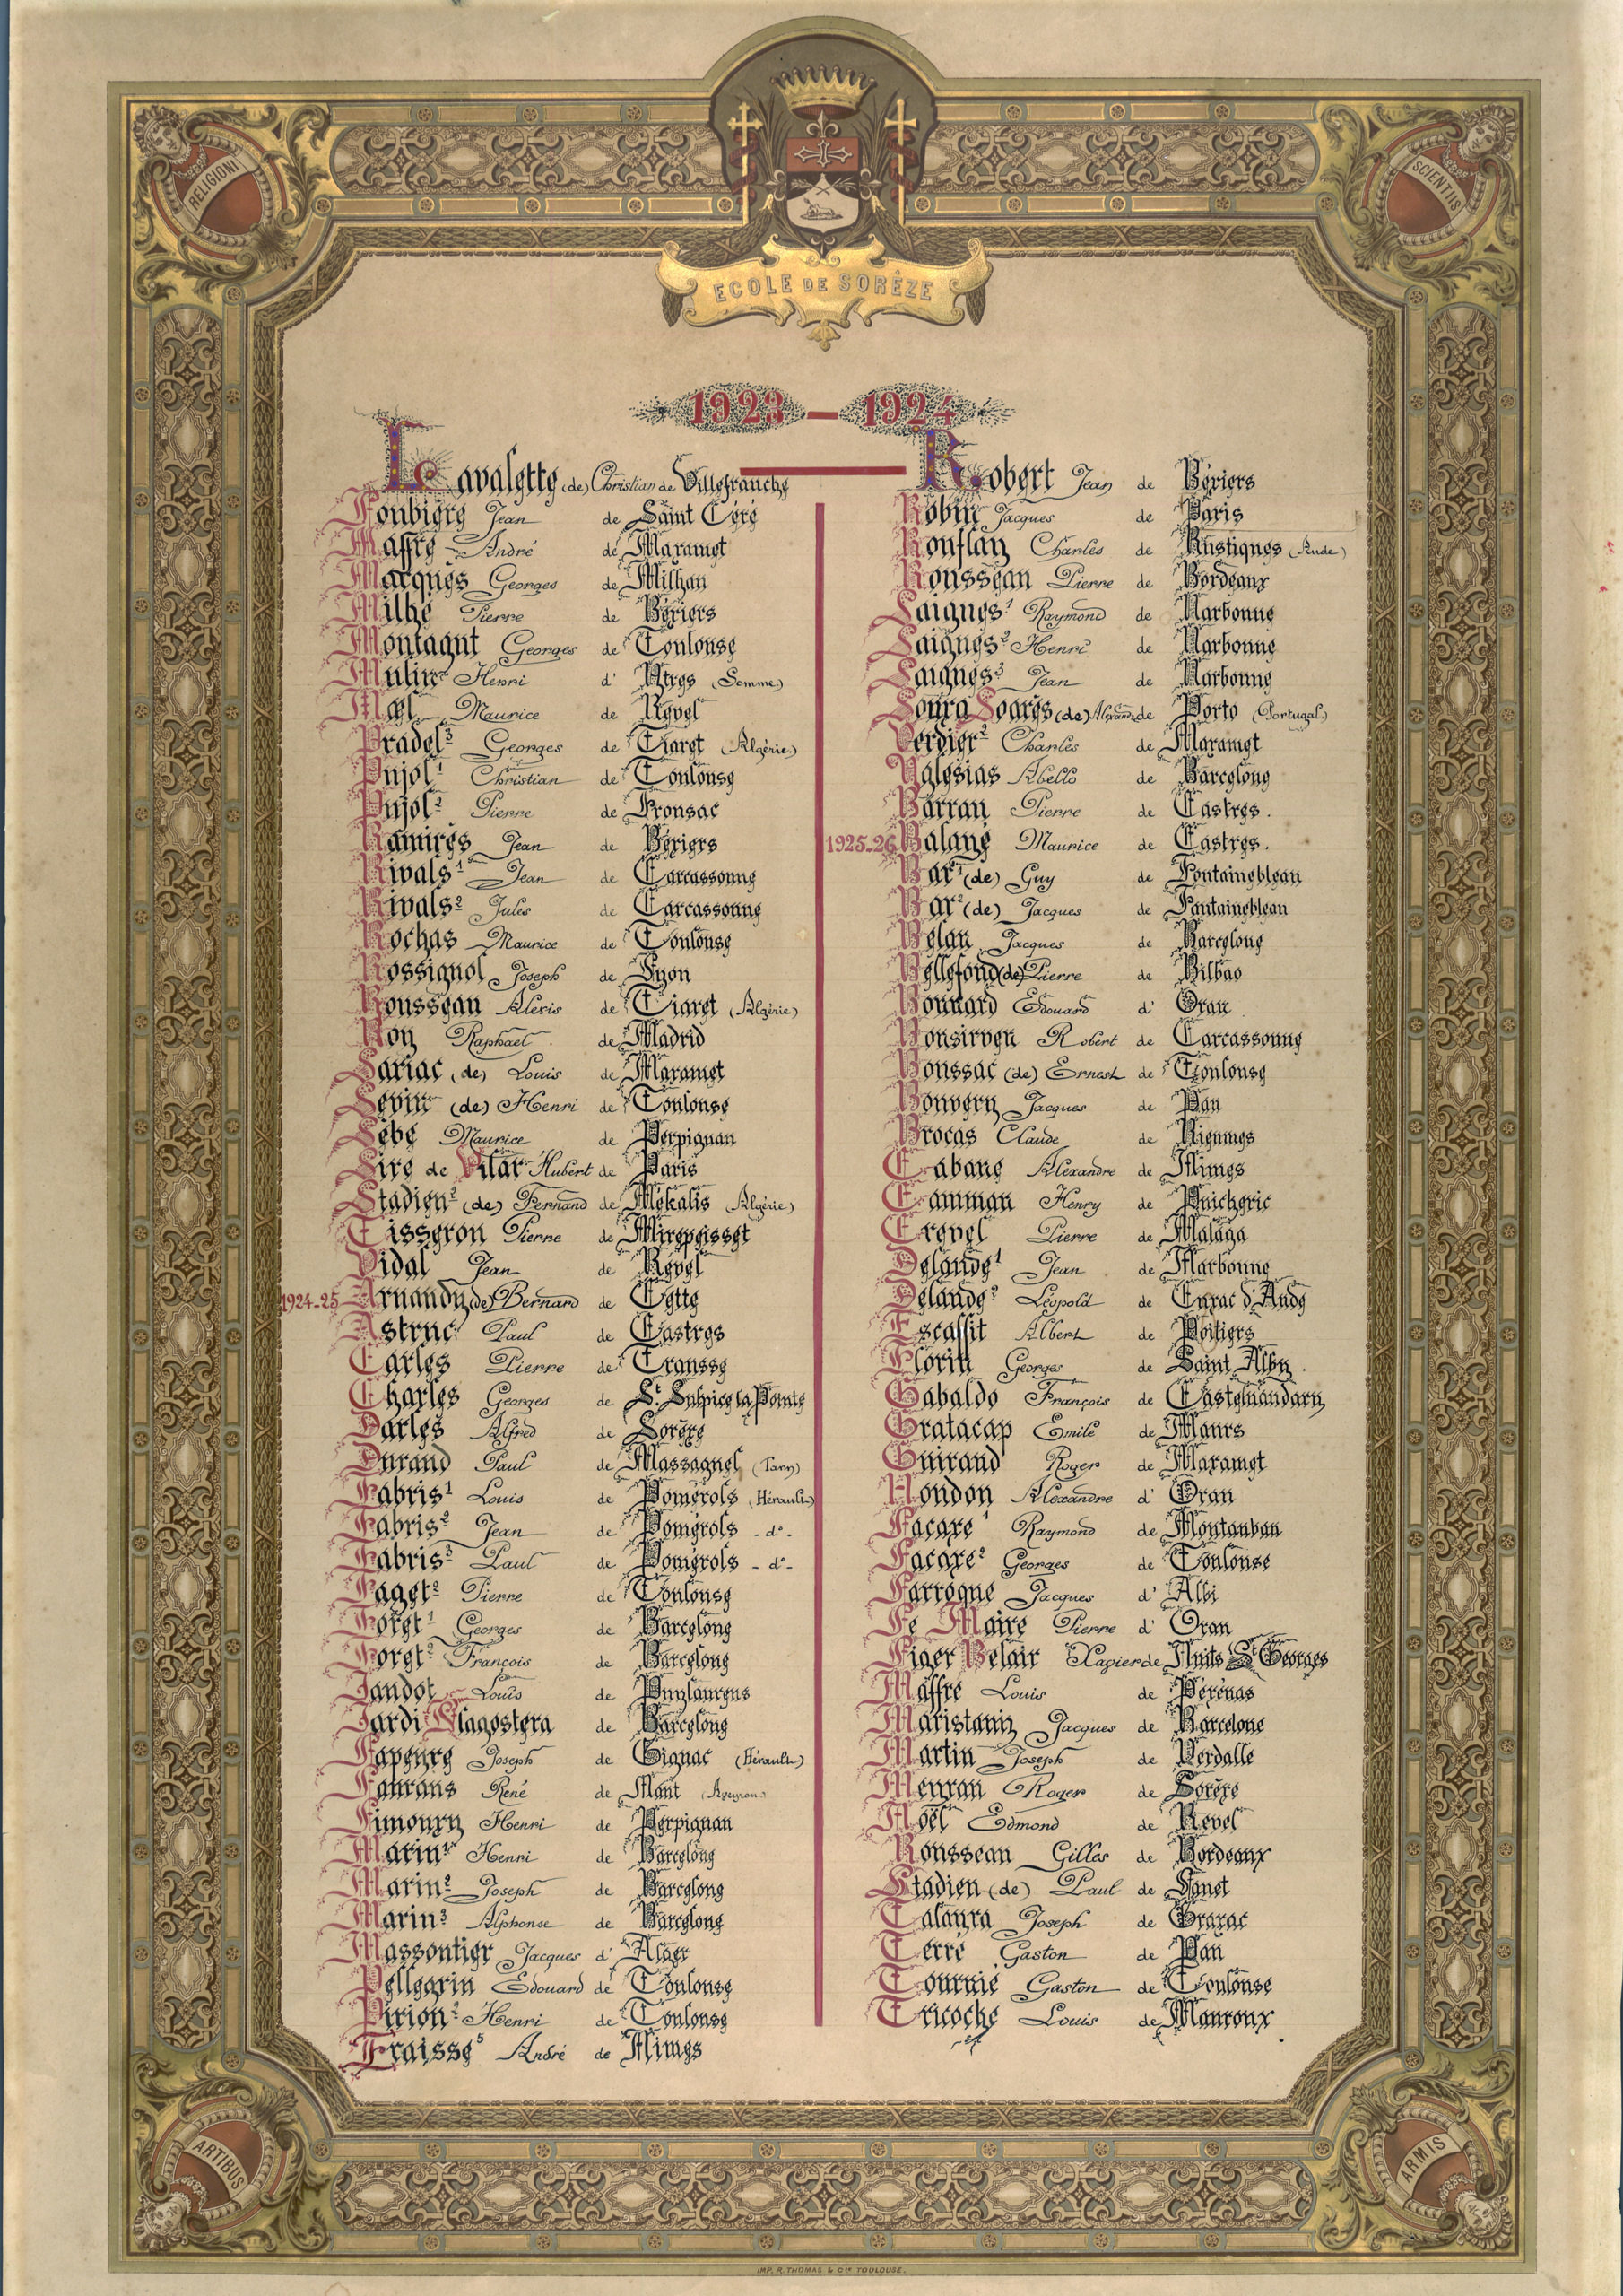 RELIGIONI
SCIENTIIS
ECOLE DE SORÈZE
1923 — 1924
Lavalette (de) Christian de Villefranche
Foubierg Jean de Saint Céré
Maffre André de Mazamet
Macques Georges de Milhau
Milhé Pierre de Béziers
Montagnt Georges de Toulouse
Mulin Henri d' Ytres (Somme)
Maurice de Revel
Pradel³ Georges de Tiaret (Algérie)
Pujol¹ Christian de Toulouse
Pujol² Pierre de Fronsac
Ramirès Jean de Béziers
Rivals¹ Jean de Carcassonne
Rivals² Jules de Carcassonne
Rochas Maurice de Toulouse
Rossignol Joseph de Lyon
Rousseau Alexis de Tiaret (Algérie)
Roy Raphael de Madrid
Sariac (de) Louis de Mazamet
Sévin (de) Henri de Toulouse
Sébé Maurice de Perpignan
Sire de Vilar Hubert de Paris
Stadieu² (de) Fernand de Mékalis (Algérie)
Tisseron Pierre de Mirepeisset
Vidal Jean de Revel
1924-25 Arnaudy (de) Bernard de Cette
Astruc Paul de Castres
Carles Pierre de Trausse
Charles Georges de St. Sulpice la Pointe
Darles Alfred de Sorèze
Durand Paul de Massaguel (Tarn)
Fabris¹ Louis de Pomérols (Hérault)
Fabris² Jean de Pomérols - d° -
Fabris³ Paul de Pomérols - d° -
Faget² Pierre de Toulouse
Foret¹ Georges de Barcelone
Foret² François de Barcelone
Jandot Louis de Puylaurens
Jardi Llagostera de Barcelone
Lapeyre Joseph de Gignac (Hérault)
Laurans René de Nant (Aveyron)
Limouzy Henri de Perpignan
Marin¹ Henri de Barcelone
Marin² Joseph de Barcelone
Marin³ Alphonse de Barcelone
Massontier Jacques d' Alger
Pellegrin Edouard de Toulouse
Pirion² Henri de Toulouse
Fraisse⁵ André de Nîmes
Robert Jean de Béziers
Robin Jacques de Paris
Rouflay Charles de Rustiques (Aude)
Rousseau Pierre de Bordeaux
Saignes¹ Raymond de Narbonne
Saignes² Henri de Narbonne
Saignes³ Jean de Narbonne
Souza Soares (de) de Porto (Portugal)
Verdier² Charles de Mazamet
Yglesias Abello de Barcelone
Barrau Pierre de Castres.
1925-26 Balané Maurice de Castres.
Bar¹ (de) Guy de Fontainebleau
Bar² (de) Jacques de Fontainebleau
Belau Jacques de Barcelone
Bellefond (de) Pierre de Bilbao
Bonnard Edouard d' Oran
Bonsirven Robert de Carcassonne
Boussac (de) Ernest de Toulouse
Bouvery Jacques de Pau
Brocas Claude de Rieumes
Cabane Alexandre de Nîmes
Camman Henry de Puicheric
Crepel Pierre de Malaga
Delande¹ Jean de Narbonne
Delande² Léopold de Cuxac d'Aude
Escaffit Albert de Poitiers
Florin Georges de Saint Alby.
Gabaldo François de Castelnaudary
Gratacap Emile de Maurs
Guiraud Roger de Mazamet
Houdou Alexandre d' Oran
Lacaze¹ Raymond de Montauban
Lacaze² Georges de Toulouse
Larroque Jacques d' Albi
Le Maire Pierre d' Oran
Liger Belair Xavier de Nuits St Georges
Maffre Louis de Pézénas
Maristany Jacques de Barcelone
Martin Joseph de Verdalle
Meyran Roger de Sorèze
Noël Edmond de Revel
Rousseau Gilles de Bordeaux
Stadieu (de) Paul de Sanet
Talayra Joseph de Grazac
Terré Gaston de Pau
Tournié Gaston de Toulouse
Tricoche Louis de Mauroux
ARTIBUS
ARMIS
IMP. R. THOMAS & Cie TOULOUSE.